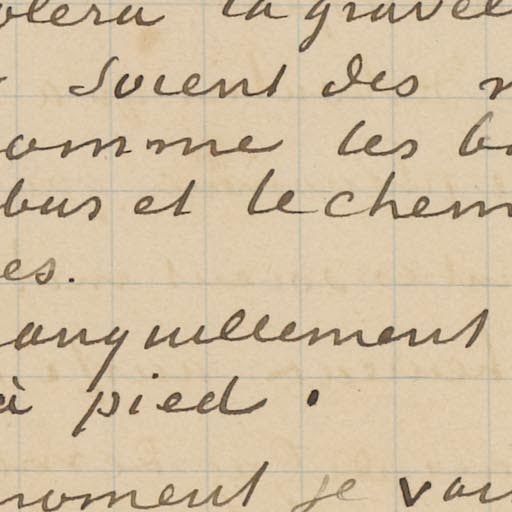 olera la gravel
soient des
omme les
bus et le chem
es.
anquillement
à pied.
moment je